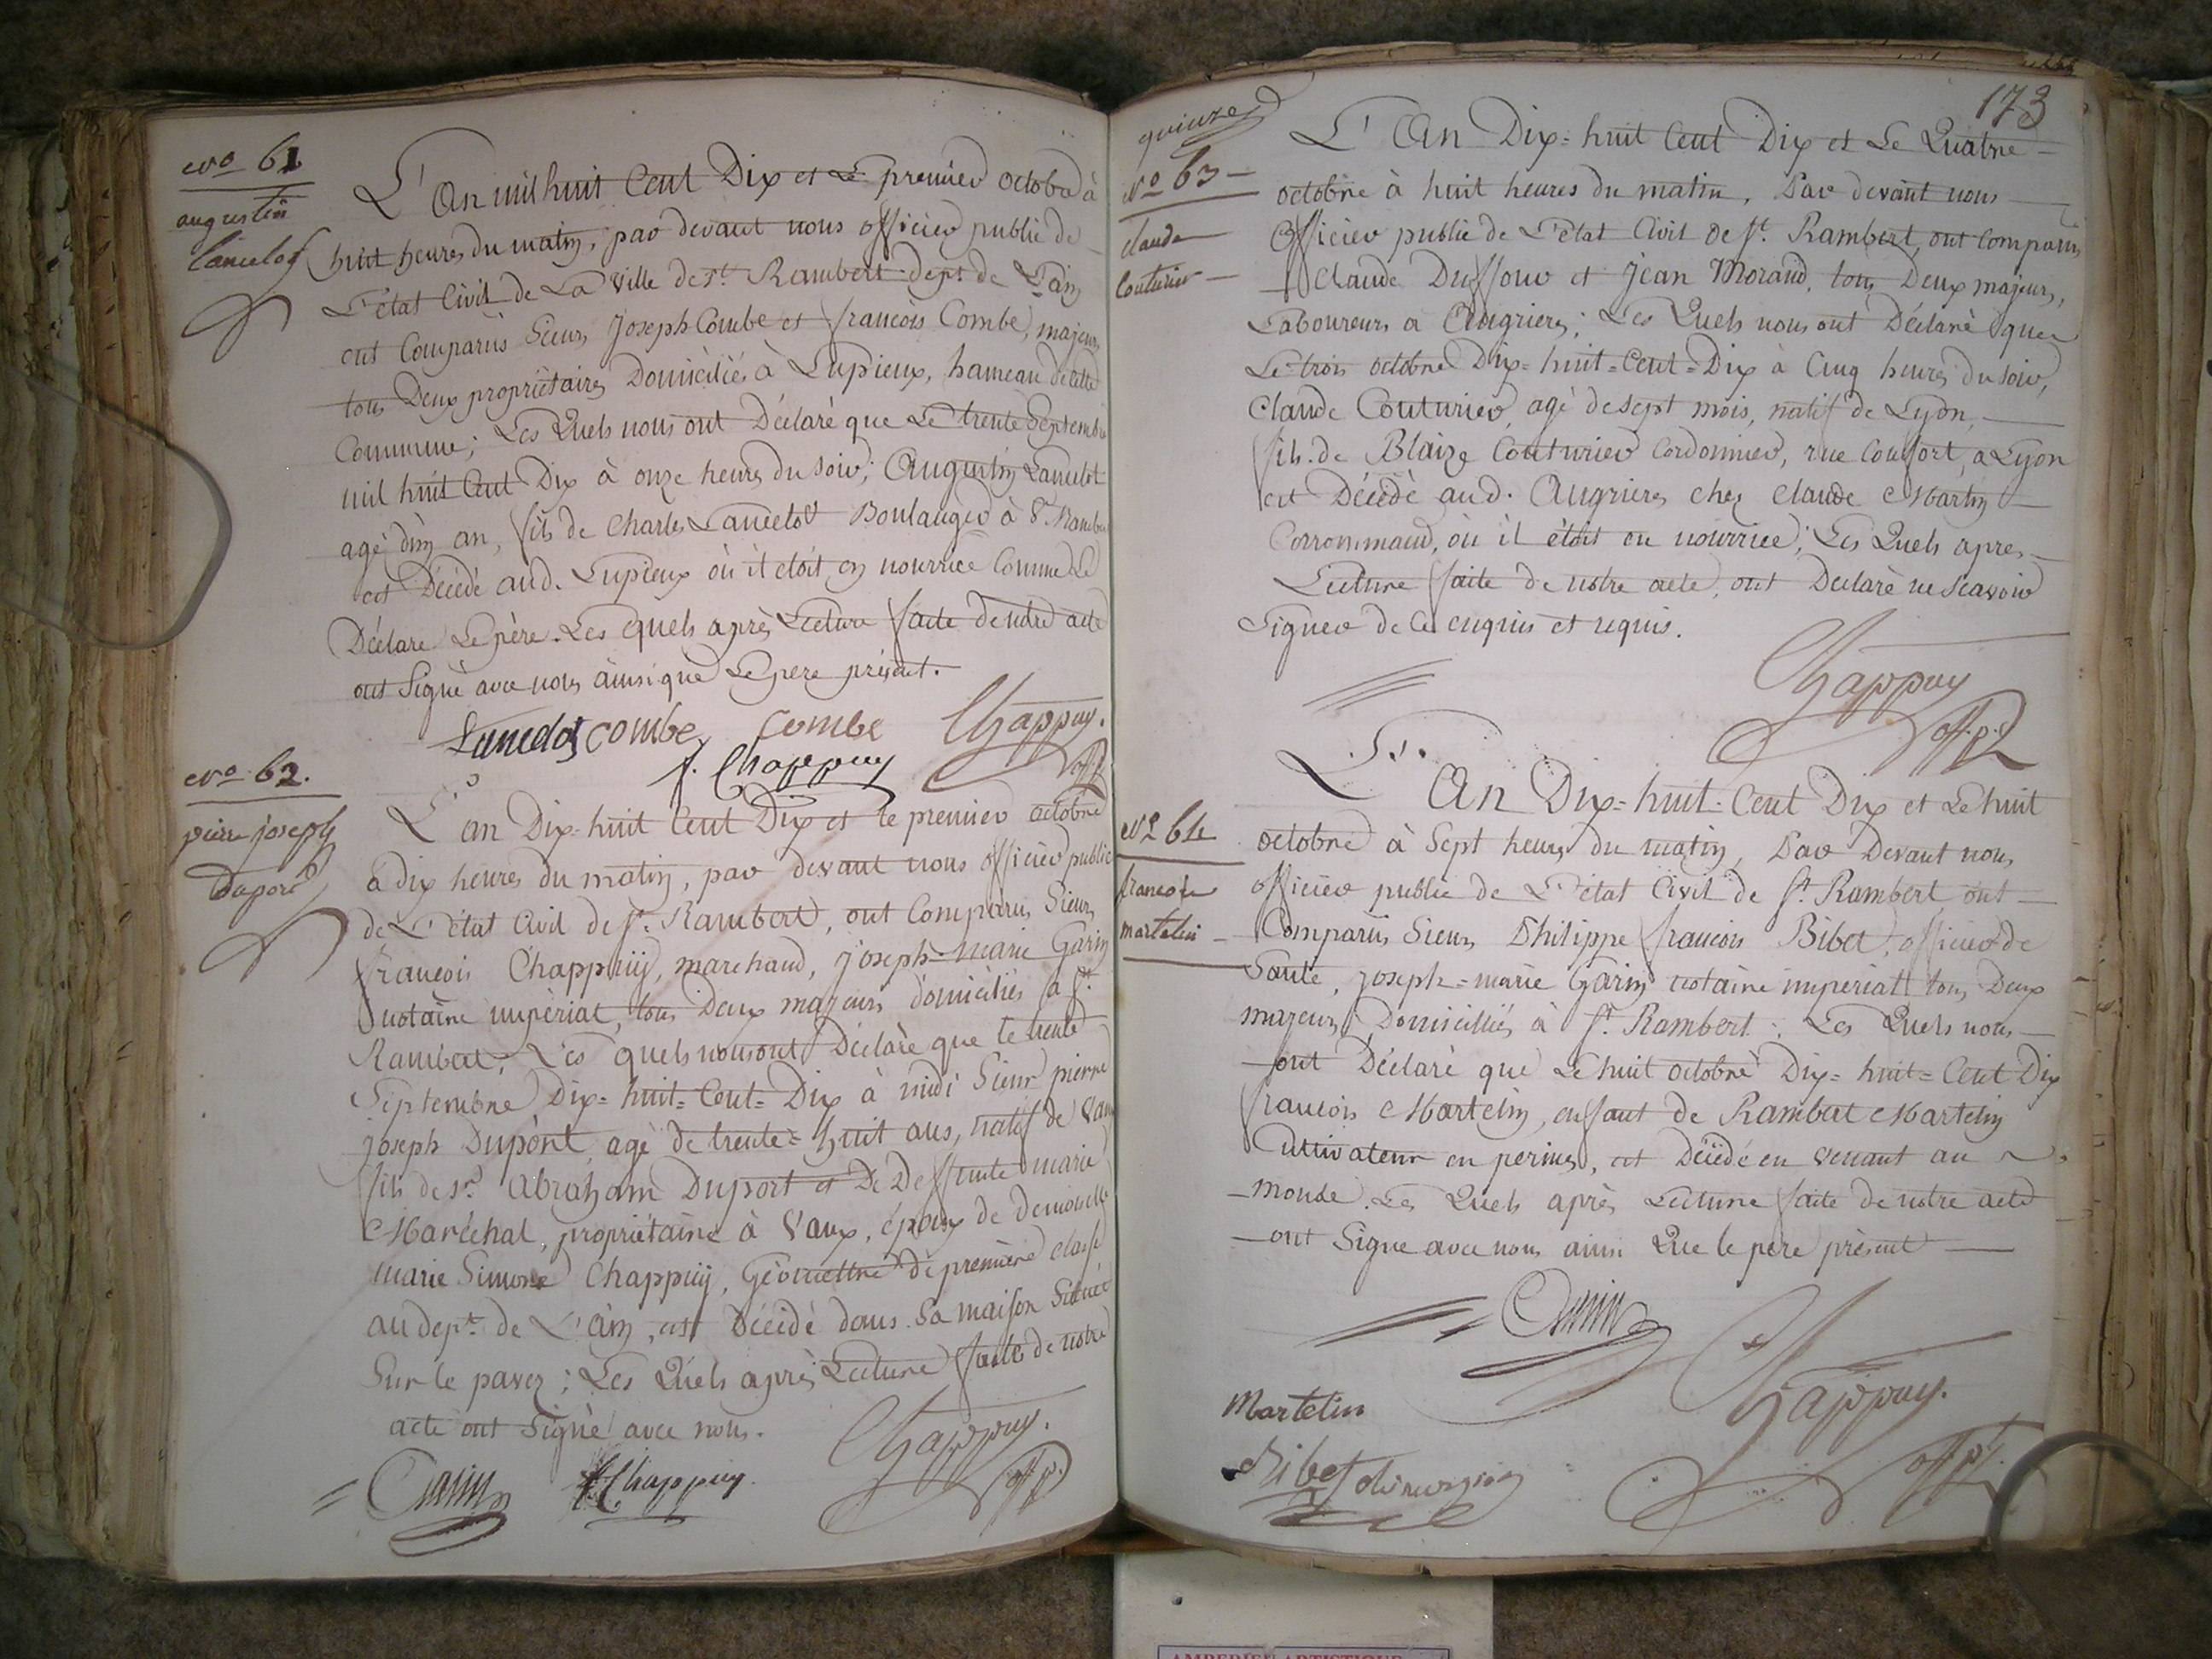 N° 61
augustin
Lancelot
L'An mil huit Cent Dix et Le premier octobre à
huit heures du matin, par devant nous officier public de
L'état Civil de La Ville de St. Rambert dept. de L'ain
ont Comparûs Sieurs Joseph Combe et françois Combe, majeurs
tous Deux propriètaires Domiciliés à Lupieux, hameau de cette
Commune; Les Quels nous ont Déclaré que Le trente Septembre
mil huit Cent Dix à onze heures du soir; Augustin Lancelot
agé d'un an, fils de Charles Lancelot Boulanger à St Rambert
est Décédé aud. Lupieux où il étoit en nourrice Comme Le
Déclare Le père. Les quels après Lecture faite de notre acte
ont Signé avec nous ainsi que Le pere présent.
Lancelot combe Combe Chappuy.
f. Chappuy off. p.
N° 62.
pierre joseph
Duport
L'an Dix-huit Cent Dix et le premier octobre
à dix heures du matin, par devant nous officier public
de L'état Civil de St. Rambert, ont Comparus Sieurs
françois Chappuij, marchand, joseph-marie Garin
notaire impérial, tous Deux majeurs domiciliés à St.
Rambert, Les quels nous ont Déclaré que le trente
Septembre Dix=huit=Cent=Dix à midi Sieur pierre
joseph Dupórt, agé de trente=huit ans, natif de Vaux
fils de sr. Abraham Duport et De Deffunte marie
Maréchal, propriétaire à Vaux, époux de demoiselle
marie Simone Chappuij, Géomettre de première classe
au dept. de L'ain, est Décédé dans Sa maison Située
Sur le pavez; Les Quels après Lecture faite de notre
acte ont Signé avec nous.
Garin f. Chappuy Chappuy. off. p.
173
quinze
N° 63
claude
Couturier
L'An Dix=huit Cent Dix et Le Quatre
octobre à huit heures du matin, Par devant nous
Officier public de L'état Civil de St. Rambert, ont Comparus
Claude Duffour et Jean Morand, tous Deux majeurs,
Laboureurs a Angrieres; Les Quels nous ont Déclaré que
Le trois octobre Dix=huit=Cent=Dix à Cinq heures du soir,
Claude Couturier, agé de sept mois, natif de Lyon,
fils de Blaize Couturier Cordonnier, rue Confort, a Lyon
est Décédé aud. Angrieres chez Claude Martin
Corrommaud, où il étoit en nourrice; Les Quels apres
Lecture faite de notre acte, ont Declaré ne Scavoir
Signer de ce enquis et requis.
Chappuy
off. p.
N° 64
francois
martelin
L'An Dix=huit=Cent Dix et Le huit
octobre à Sept heures du matin, Par Devant nous
officier public de L'état Civil de St. Rambert, ont
Comparûs Sieurs Philippe françois Bibet, officier de
Santé, joseph=marie Garin notaire impérial tous Deux
majeurs Domicilliés à St. Rambert: Les Quels nous
ont Déclaré que Le huit octobre Dix=huit=Cent Dix
francois Martelin, enfant de Rambert Martelin
Cultivateur en perines, est Décédé en venant au
monde. Les Quels après Lecture faite de notre acte
ont Signe avec nous ainsi Que le pere présent
Garin
Martelin Chappuy.
Bibet chirurgien off. p.